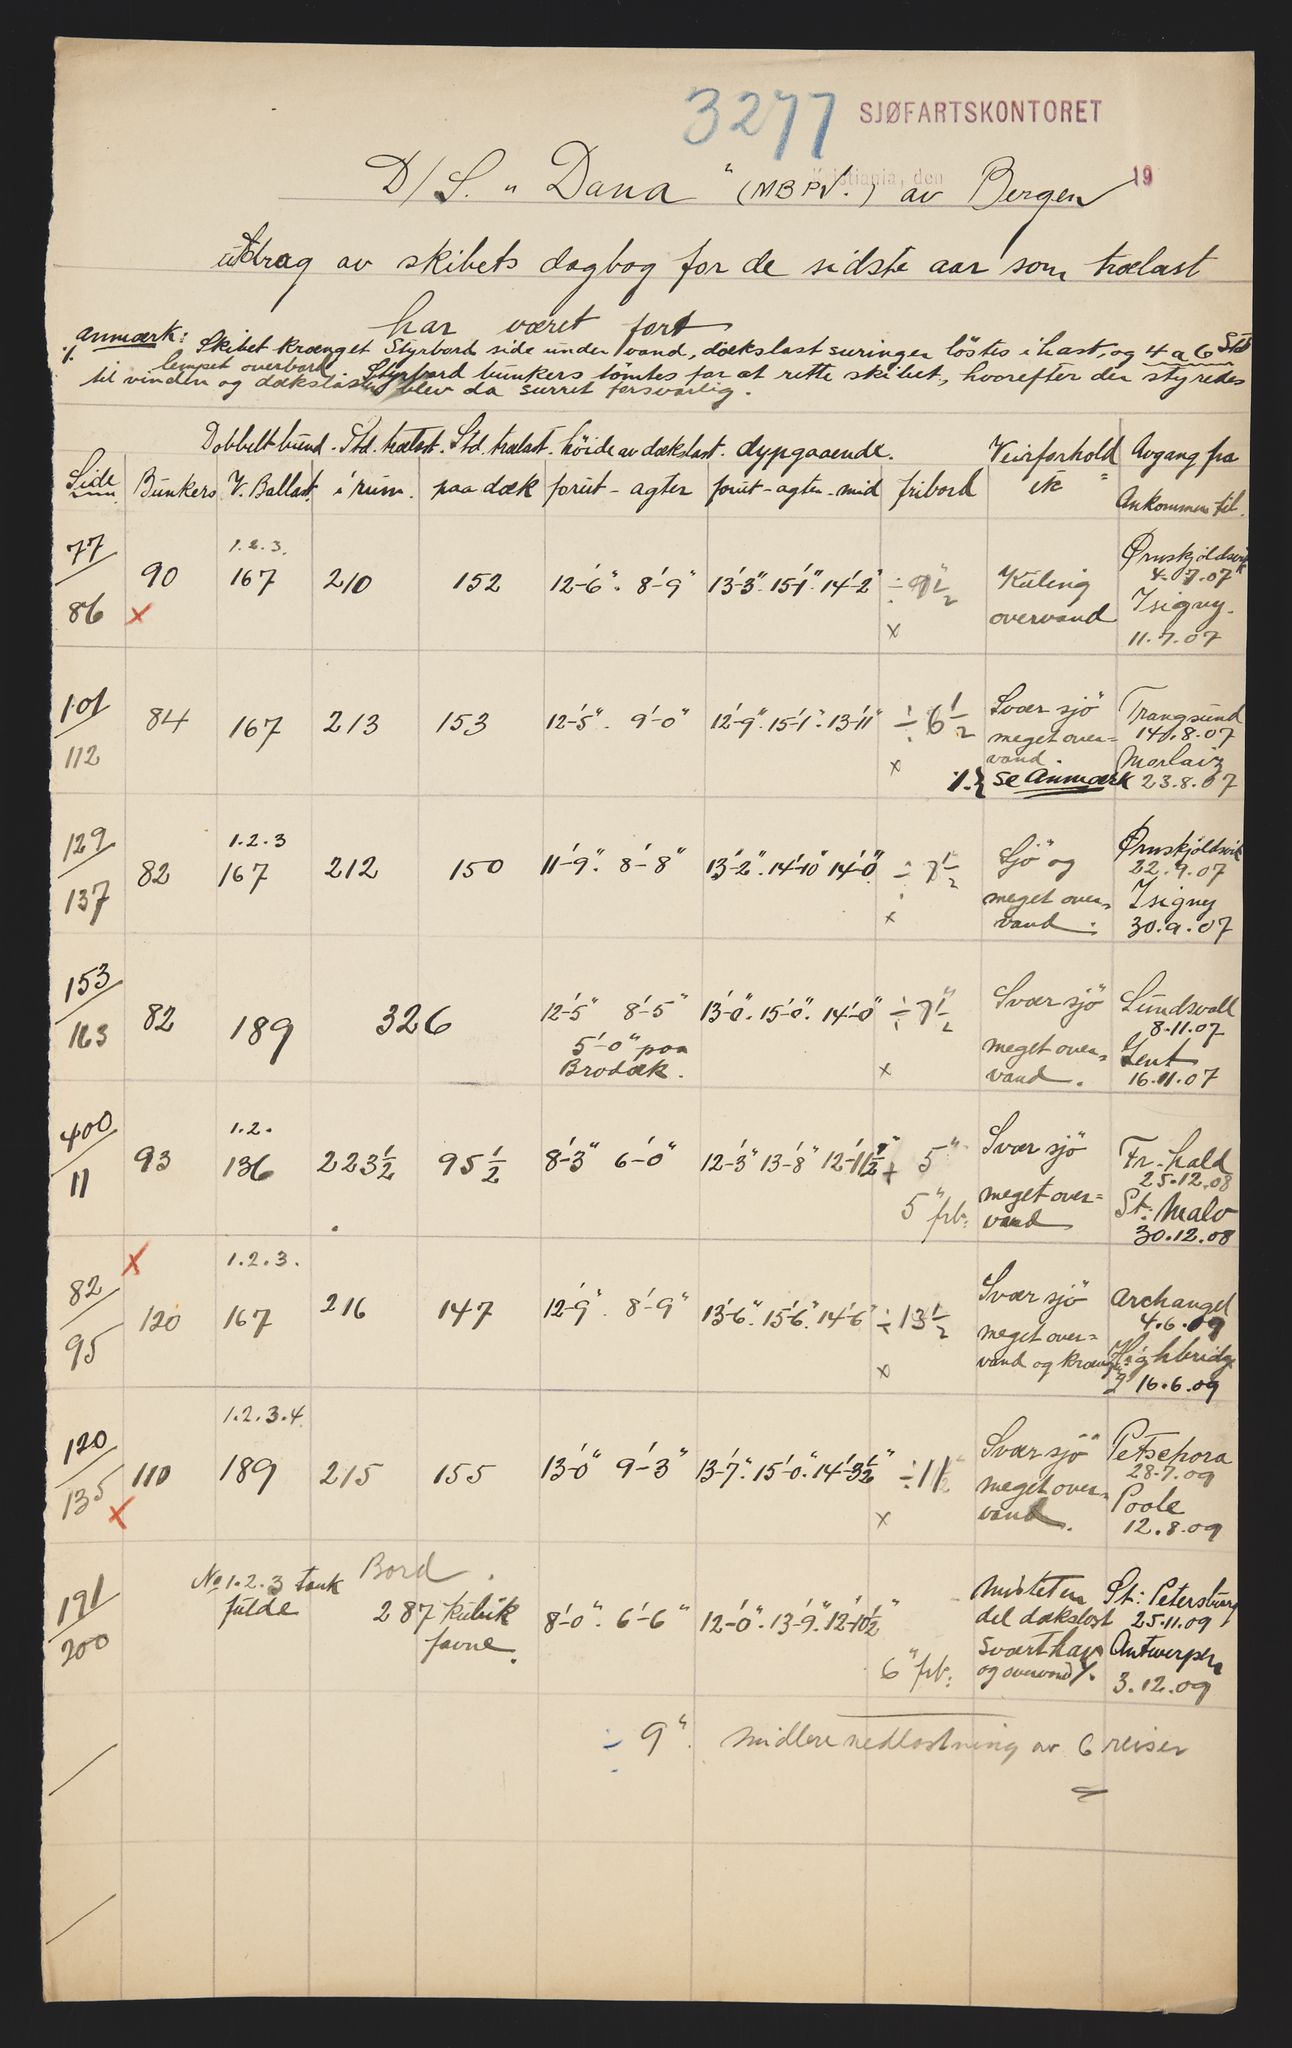 3277 SJØFARTSKONTORET
Kristiania, den 19
D/S. „Dana" (MBPV.) av Bergen
utdrag av skibets dagbog for de sidste aar som trælast
har været ført
Anmærk: Skibet krænget Styrbord side under vand, dækslast suringer löstes i hast, og 4 a 6 Std
·/. lempet overbord. Styrbord bunkers tömtes for at rette skibet, hvorefter der styredes
til vinden og dækslasten blev da surret forsvarlig.
Dobbelt bund. Std. trælast. Std. trælast. höide av dækslast. dypgaaende. Veirforhold Avgang fra
Side Bunkers V. Ballast. i rum. paa dæk forut - agter forut - agter - mid fribord etc Ankommen til.
77/86 90 1.2.3. 167 210 152 12'-6". 8'-9" 13'-3". 15'-1". 14'-2" ÷ 9 1/2" Kuling overvand Ørnskjöldsvik 4.7.07
x x Isigny. 11.7.07
101/112 84 167 213 153 12'-5". 9'-0" 12'-9". 15'-1". 13'-11" ÷ 6 1/2 Svær sjö meget over= vand. Trangsund 14.8.07
x ·/.} se Anmærk Morlaix 23.8.07
129/137 82 1.2.3 167 212 150 11'-9". 8'-8" 13'-2". 14'-10" 14'-0". ÷ 7 1/2 Sjö og meget over= vand. Ørnskjöldsvik 22.9.07
x Isigny 30.9.07
153/163 82 189 326 12'-5" 8'-5" 13'-0". 15'-0". 14'-0" ÷ 7 1/2" Svær sjö meget over= vand. Sundsvall 8.11.07
5'-0" paa Brodæk. x Gent 16.11.07
400/11 93 1.2. 136 223 1/2 95 1/2 8'-3" 6'-0" 12'-3" 13'-8" 12'-11 1/2" + 5" Svær sjö meget over= vand Fr.hald 25.12.08
5" frb: St. Malo 30.12.08
82/95 x 120 1.2.3. 167 216 147 12'-9". 8'-9" 13'-6". 15'-6". 14'-6" ÷ 13 1/2 Svær sjö meget over= vand og krænging Archangel 4.6.09
x Highbridge 16.6.09
120/135 110 1.2.3.4. 189 215 155 13'-0" 9'-3" 13'-7". 15'-0". 14'-3 1/2" ÷ 11 1/2" Svær sjö meget over= vand. Petschora 28.7.09
x x Poole 12.8.09
191/200 No 1.2.3 tank fulde Bord. 287 kubik favne. 8'-0". 6'-6" 12'-0". 13'-9". 12'-10 1/2" mistet en del dækslast St: Petersburg 25.11.09
6" frb: svært hav og overvand ·/. Antwerpen 3.12.09
÷ 9". midlere nedlastning av 6 reiser